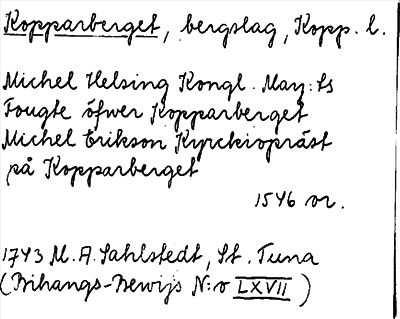 Kopparberget, bergslag, Kopp. l.
Michel Helsing Kongl. May:ts
Fougte öfwer Kopparberget
Michel Erikson Kyrckiopräst
på Kopparberget
1546 or.
1743 M. A. Sahlstedt, St. Tuna
(Bihangs-Bewijs N:o LXVII)